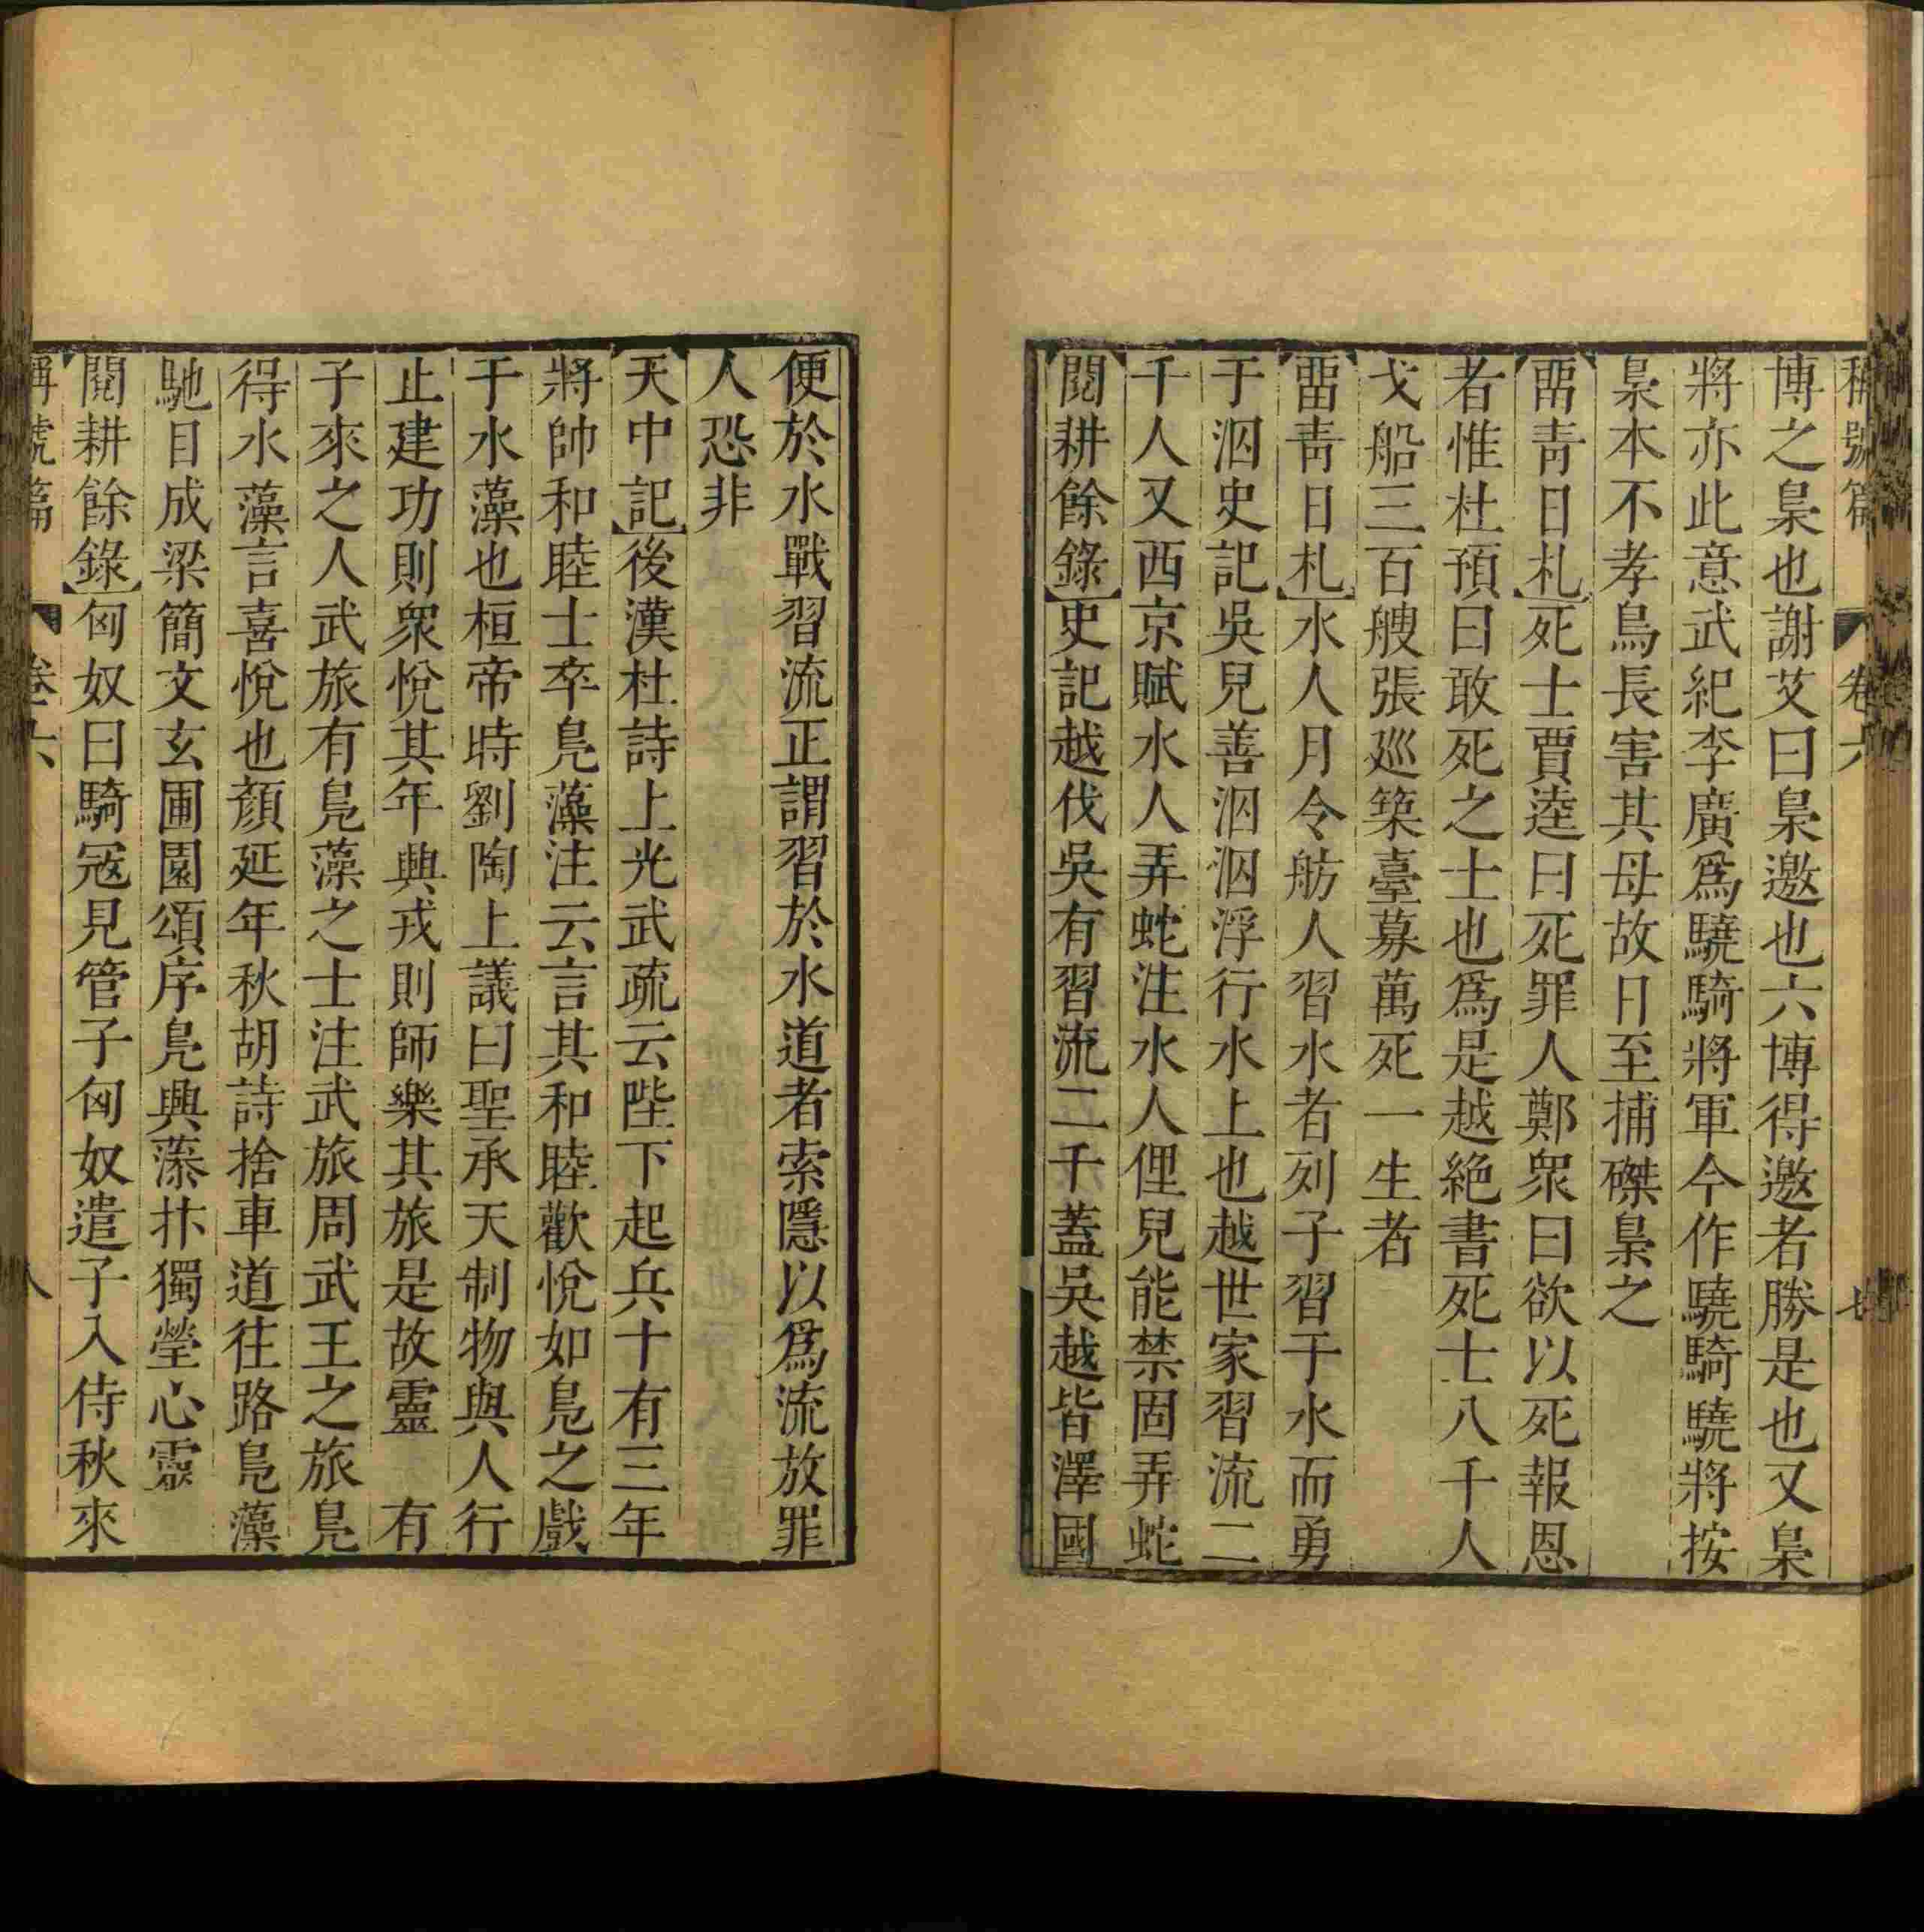 稱號篇 卷六 七
博之梟也謝艾曰梟邀也六博得邀者勝是也又梟
將亦此意武紀李廣爲驍騎將軍今作驍騎驍將按
梟本不孝鳥長害其母故日至捕磔梟之
【畱靑日札】死士賈逵曰死罪人鄭衆曰欲以死報恩
者惟杜預曰敢死之士也爲是越絶書死士八千人
戈船三百艘張巡築臺募萬死一生者
【畱靑日札】水人月令舫人習水者列子習于水而勇
于泅史記吳兒善泅泅浮行水上也越世家習流二
千人又西京賦水人弄蛇注水人俚兒能禁固弄蛇
【閱耕餘錄】史記越伐吳有習流二千蓋吳越皆澤國
便於水戰習流正謂習於水道者索隱以爲流放罪
人恐非
【天中記】後漢杜詩上光武疏云陛下起兵十有三年
將帥和睦士卒鳧藻注云言其和睦歡悅如鳧之戲
于水藻也桓帝時劉陶上議曰聖承天制物與人行
止建功則衆悅其年興戎則師樂其旅是故靈 有
子來之人武旅有鳧藻之士注武旅周武王之旅鳧
得水藻言喜悅也顏延年秋胡詩捨車道往路鳧藻
馳目成梁簡文玄圃園頌序鳧興藻抃獨瑩心靈
【閱耕餘錄】匈奴曰騎寇見管子匈奴遣子入侍秋來
稱號篇 卷六 八